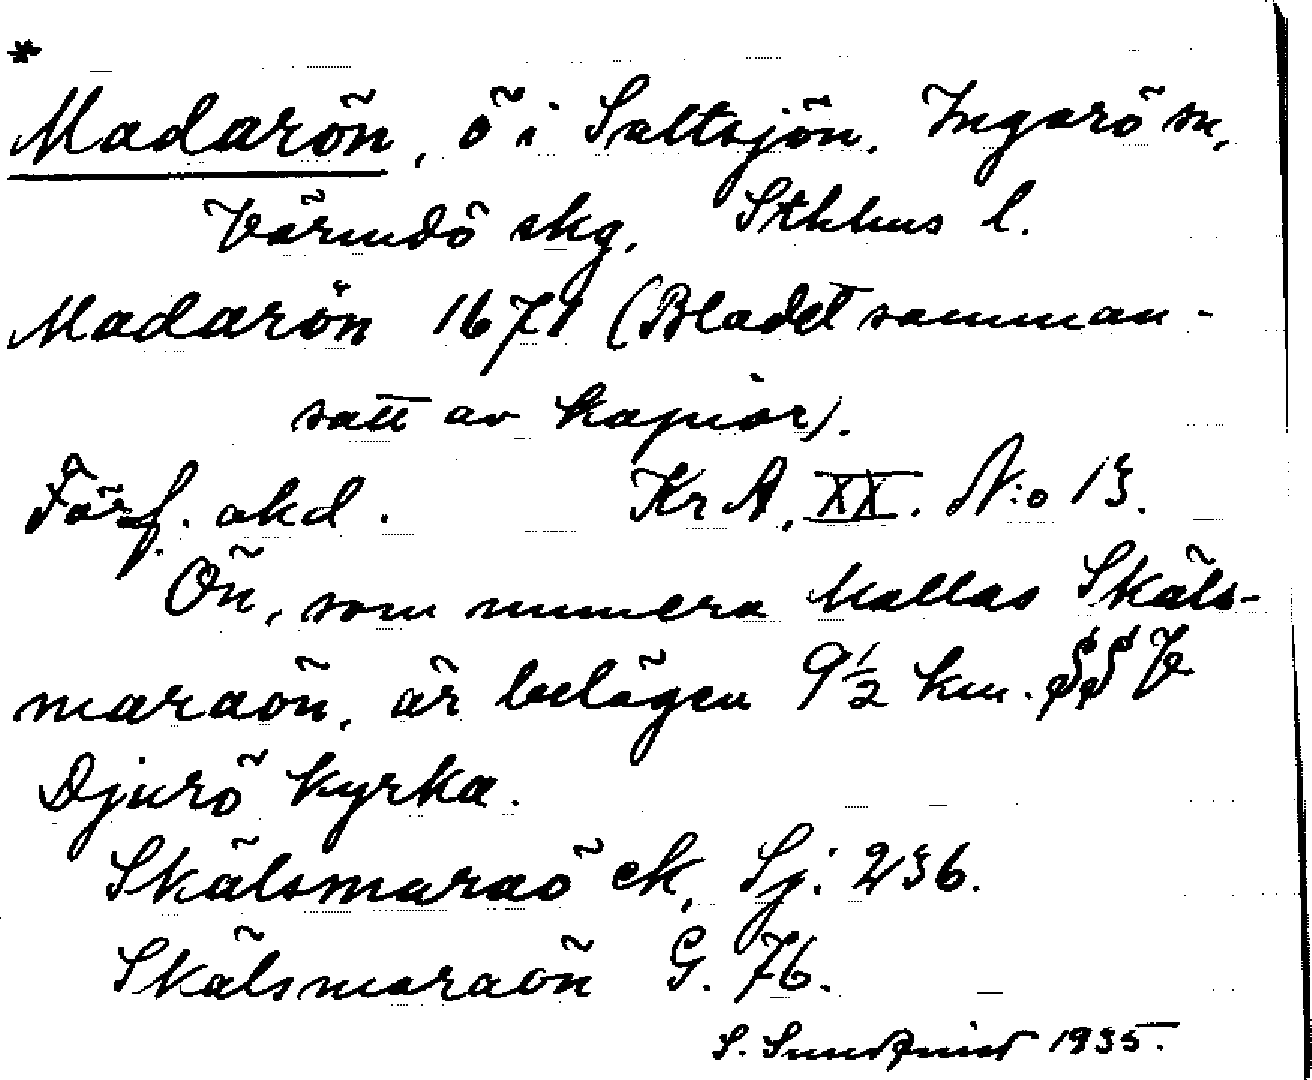 *
Madarön, ö i Saltsjön. Ingarö sn,
Värmdö skg, Sthlms l.
Madarön 1671 (Bladet samman-
satt av kopior).
Förf. okd. Kr A, XX. N:o 13.
Ön, som numera kallas Skäls-
maraön, är belägen 9½ km. SSV
Djurö kyrka.
Skälsmaraö ek, Sj: 236.
Skälsmaraön G. 76.
S. Sundquist 1935.